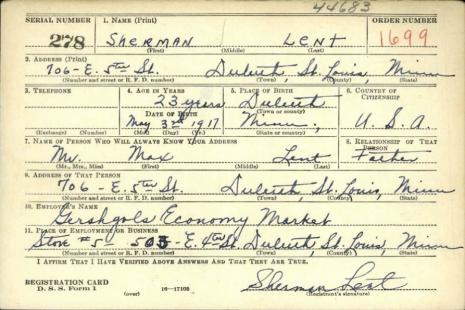 44683
SERIAL NUMBER 1. NAME (Print) ORDER NUMBER
278 SHERMAN LENT 1699
(First) (Middle) (Last)
2. ADDRESS (Print)
706-E. 5th St. Duluth, St. Louis, Minn
(Number and street or R. F. D. number) (Town) (County) (State)
3. TELEPHONE 4. AGE IN YEARS 5. PLACE OF BIRTH 6. COUNTRY OF CITIZENSHIP
23 years Duluth
DATE OF BIRTH (Town or county)
May 3rd 1917 Minn., U. S. A.
(Exchange) (Number) (Mo.) (Day) (Yr.) (State or country)
7. NAME OF PERSON WHO WILL ALWAYS KNOW YOUR ADDRESS 8. RELATIONSHIP OF THAT PERSON
Mr. Max Lent Father
(Mr., Mrs., Miss) (First) (Middle) (Last)
9. ADDRESS OF THAT PERSON
706 - E. 5th St. Duluth, St. Louis, Minn
(Number and street or R. F. D. number) (Town) (County) (State)
10. EMPLOYER'S NAME
Gershgols Economy Market
11. PLACE OF EMPLOYMENT OR BUSINESS
Store #5 503-E. 4th St. Duluth, St. Louis, Minn
(Number and street or R. F. D. number) (Town) (County) (State)
I AFFIRM THAT I HAVE VERIFIED ABOVE ANSWERS AND THAT THEY ARE TRUE.
REGISTRATION CARD Sherman Lent
D. S. S. Form 1 (over) 16-17105 (Registrant's signature)